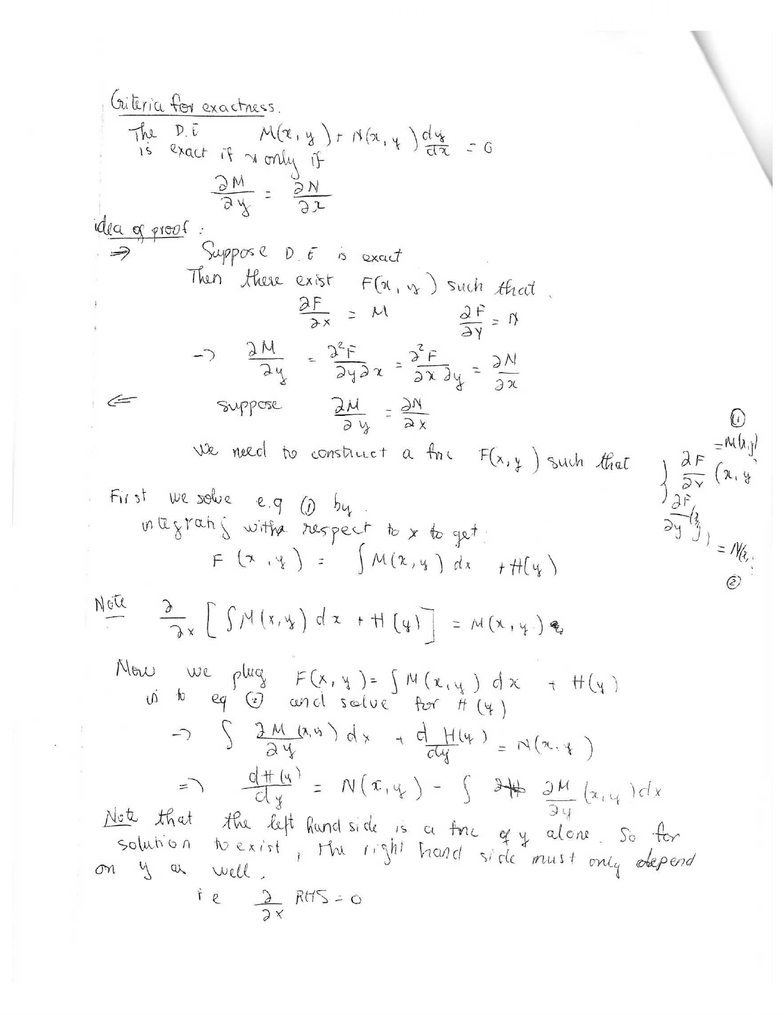 Criteria for exactness.
The D.E M(x, y) + N(x, y) dy/dx = 0
is exact if & only if
∂M/∂y = ∂N/∂x
idea of proof :
⇒ Suppose D.E is exact
Then there exist F(x, y) such that.
∂F/∂x = M ∂F/∂y = N
→ ∂M/∂y = ∂²F/∂y∂x = ∂²F/∂x∂y = ∂N/∂x
⇐ suppose ∂M/∂y = ∂N/∂x
We need to construct a fnc F(x, y) such that } ∂F/∂x (x, y) = M(x, y) ①
∂F/∂y (x, y) = N(x, ②
First we solve e.q ① by.
integrating with respect to x to get:
F(x, y) = ∫ M(x, y) dx + H(y)
Note ∂/∂x [∫ M(x, y) dx + H(y)] = M(x, y)
Now we plug F(x, y) = ∫ M(x, y) dx + H(y)
in to eq ② and solve for H(y)
→ ∫ ∂M/∂y (x, y) dx + d H(y)/dy = N(x, y)
⇒ dH(y)/dy = N(x, y) - ∫ ∂M/∂y (x, y) dx
Note that the left hand side is a fnc of y alone. So for
solution to exist, the right hand side must only depend
on y as well.
ie ∂/∂x RHS = 0